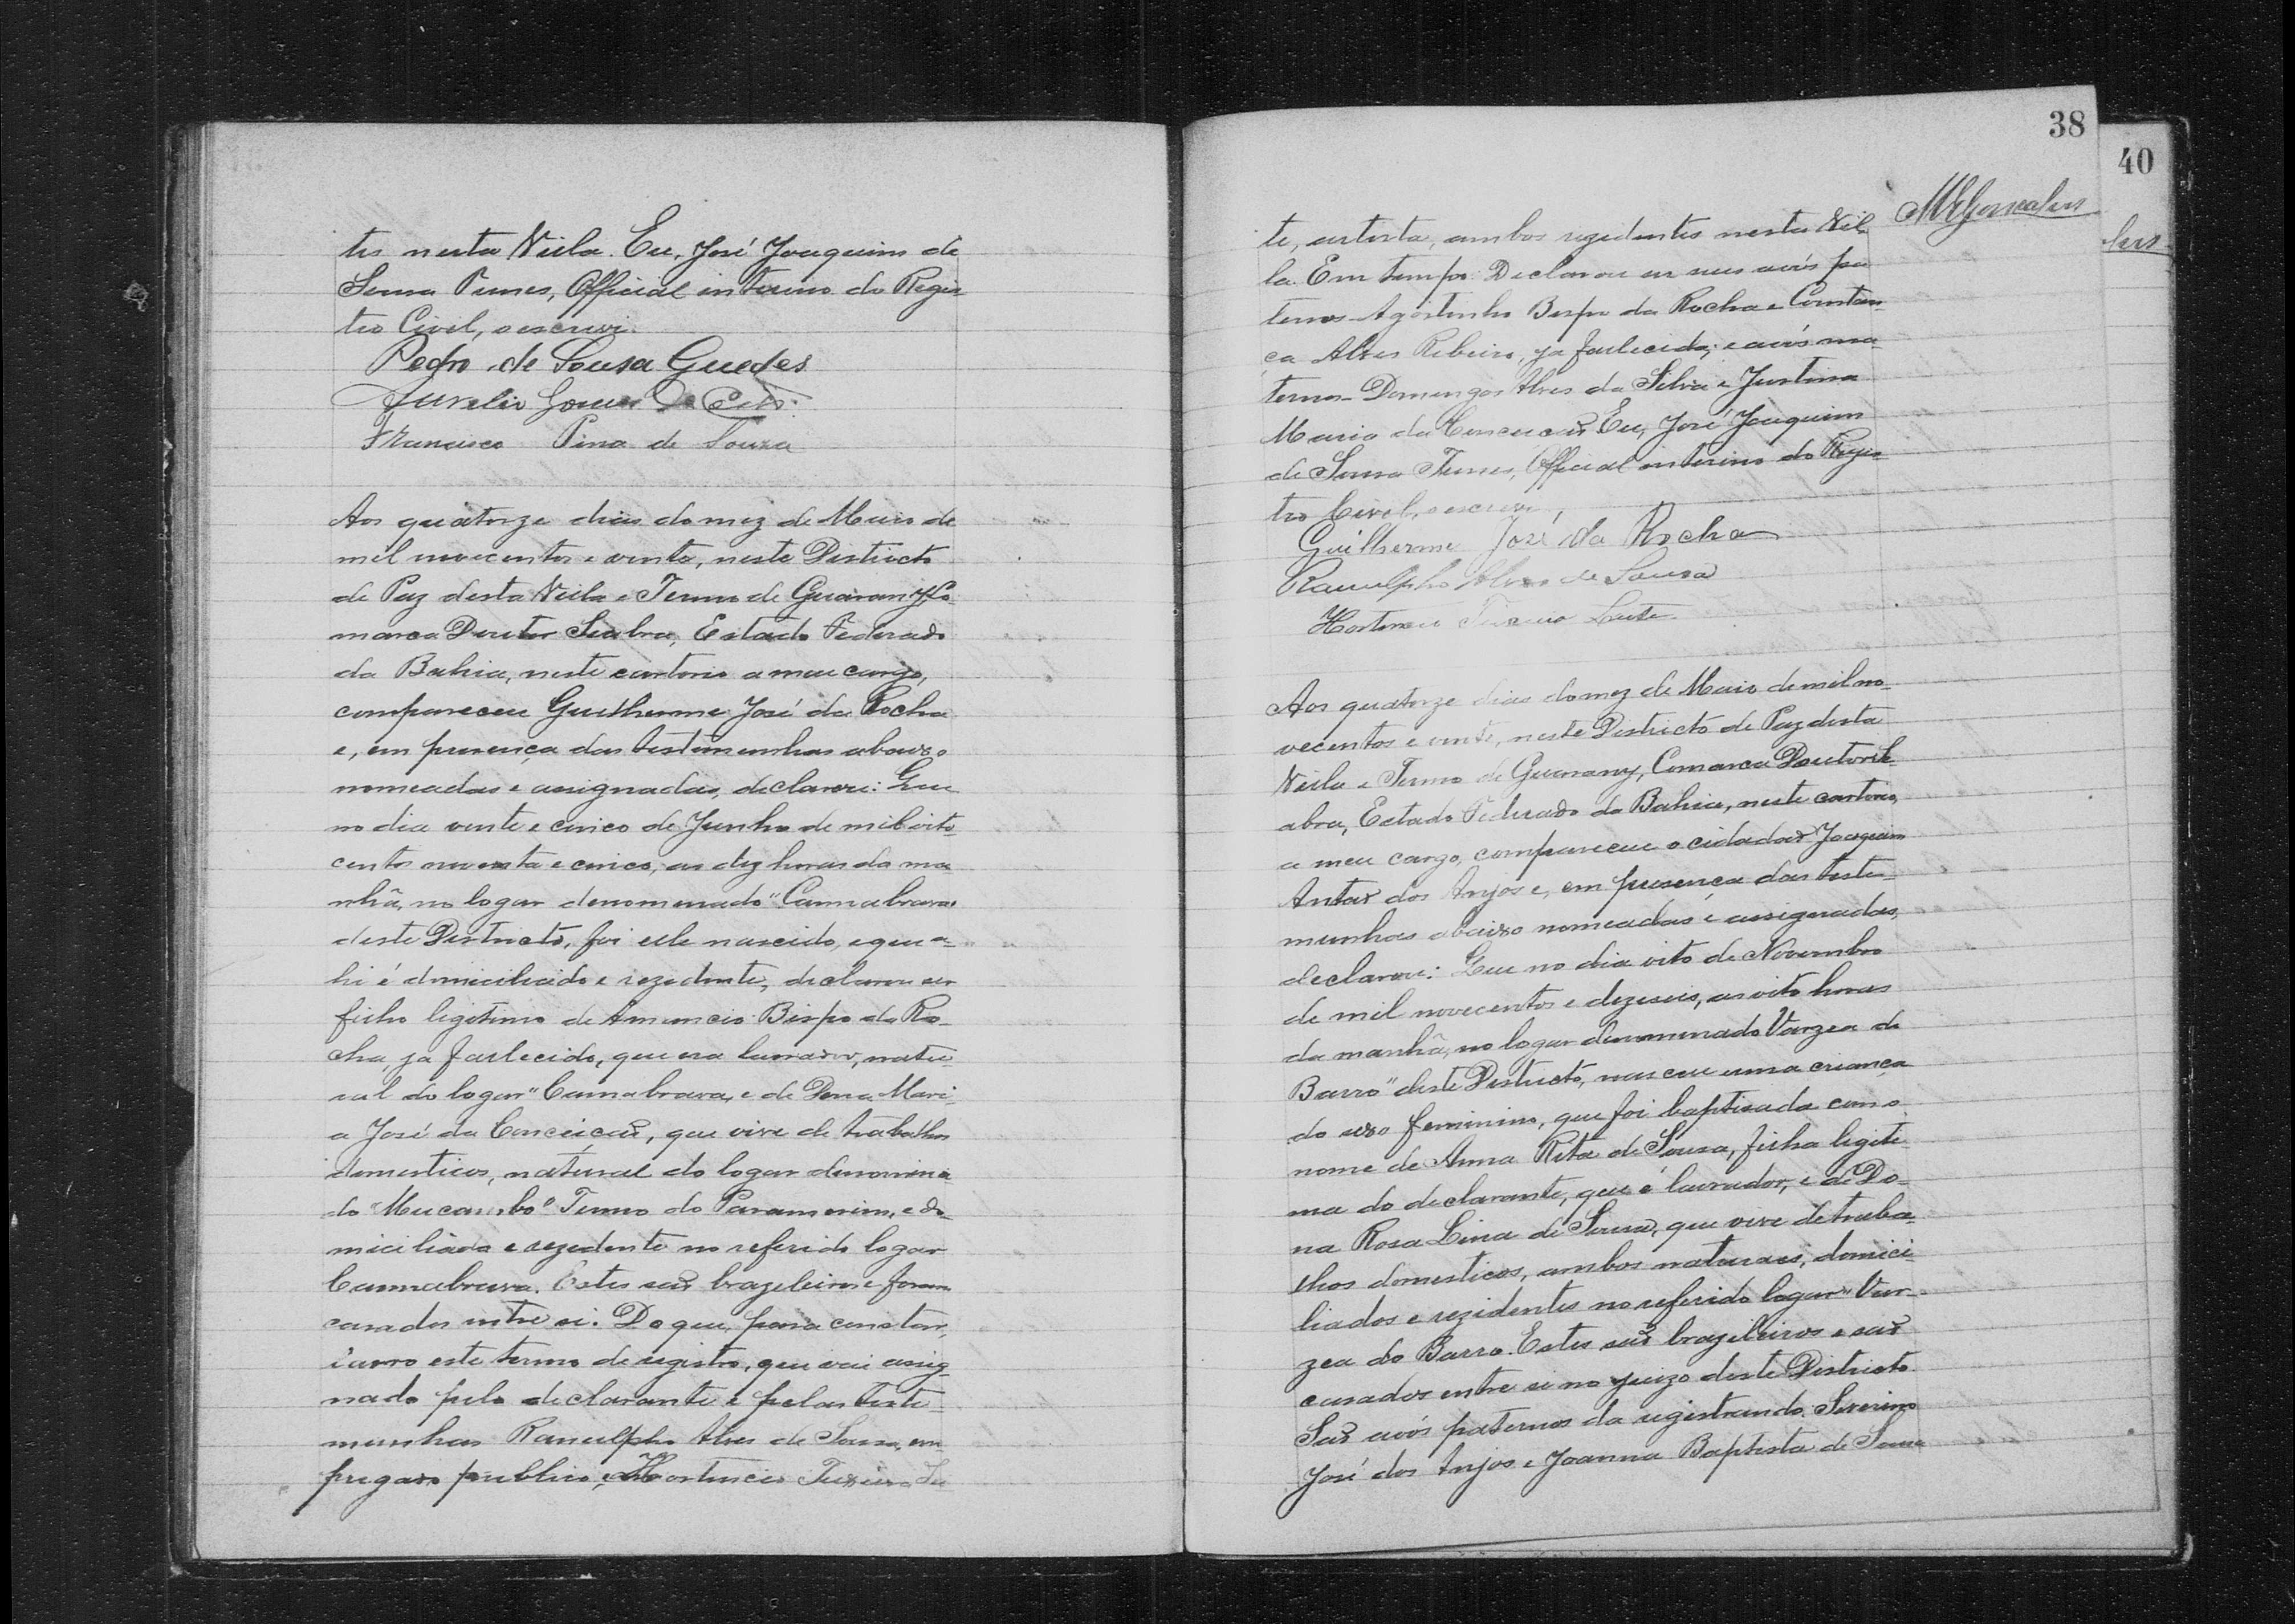 tes nesta Villa. Eu, José Joaquim de
Sousa Tunes, Official interino do Regis-
tro Civil, o escrevi.
Pedro de Sousa Guedes
Aurelio Gomes de
Francisco Pina de Souza
Aos quatorze dias do mez de Maio de
mil novecentos e vinte, neste Districto
de Paz desta Villa e Termo de Guarany, Co-
marca Doutor Seabra, Estado Federado
da Bahia, neste cartorio a meu cargo,
compareceu Guilherme José da Rocha
e, em presença das testemunhas abaixo
nomeadas e assignadas, declarou: Que
no dia vinte e cinco de Junho de mil oito-
centos noventa e cinco, as dez horas da ma-
nhã, no logar denomenado "Cannabrava"
deste Districto, foi elle nascido, e que a-
hi é domiciliado e rezidente, declarou ser
filho legitimo de Amancio Bispo da Ro-
cha, ja fallecido, que era lavrador, natu-
ral do logar "Cannabrava, e de Dona Mari-
a José da Conceição, que vive de trabalhos
domesticos, natural do logar denomina-
do "Mucambo" Termo do Paramerim, e do-
miciliada e rezedente no referido logar
Cannabrava. Estes são brazileiros e foram
casados entre si. Do que, para constar,
lavro este termo de registro, que vai assig-
nado pelo declarante e pelas teste-
munhas Ranulpho Alves de Sousa, em-
pregado publico, e Hortencio Teixeira Lei-
38
40
MRGonsalves
lves
te, artista, ambos rezedentes nesta Vil-
la. Em tempo: Declarou ser seus avós pa-
ternos Agostinho Bispo da Rocha e Constan-
ça Alves Ribeiro, ja fallecidos; e avós ma-
ternos Domingos Alves da Silva e Justina
Maria da Conceição. Eu, José Joaquim
de Sousa Tunes, Official interino do Regis-
tro Civil, o escrevi,
Guilherme José da Rocha
Ranulpho Alves de Sousa
Hortencio Teixeira Leite
Aos quatorze dias do mez de Maio de mil no-
vecentos e vinte, neste Districto de Paz desta
Villa e Termo de Guarany, Comarca Doutor Se-
abra, Estado Federado da Bahia, neste cartorio,
a meu cargo, compareceu o cidadão Joaquim
Antão dos Anjos e, em presença das teste-
munhas abaixo nomeadas e assignadas,
declarou: Que no dia oito de Novembro
de mil novecentos e dezeseis, as oito horas
da manhã, no logar denomenado Varzea do
Barro" deste Districto, nasceu uma criança
do sexo feminino, que foi baptisada com o
nome de Anna Rita de Sousa, filha legiti-
ma do declarante, que é lavrador, e de Do-
na Rosa Lina de Sousa, que vive de traba-
lhos domesticos, ambos naturaes, domici-
liados e rezidentes no referido logar "Var-
zea do Barro. Estes são brazileiros e são
casados entre si no juizo deste Districto.
São avós paternos da registranda. Severino
José dos Anjos e Joanna Baptista de Sousa